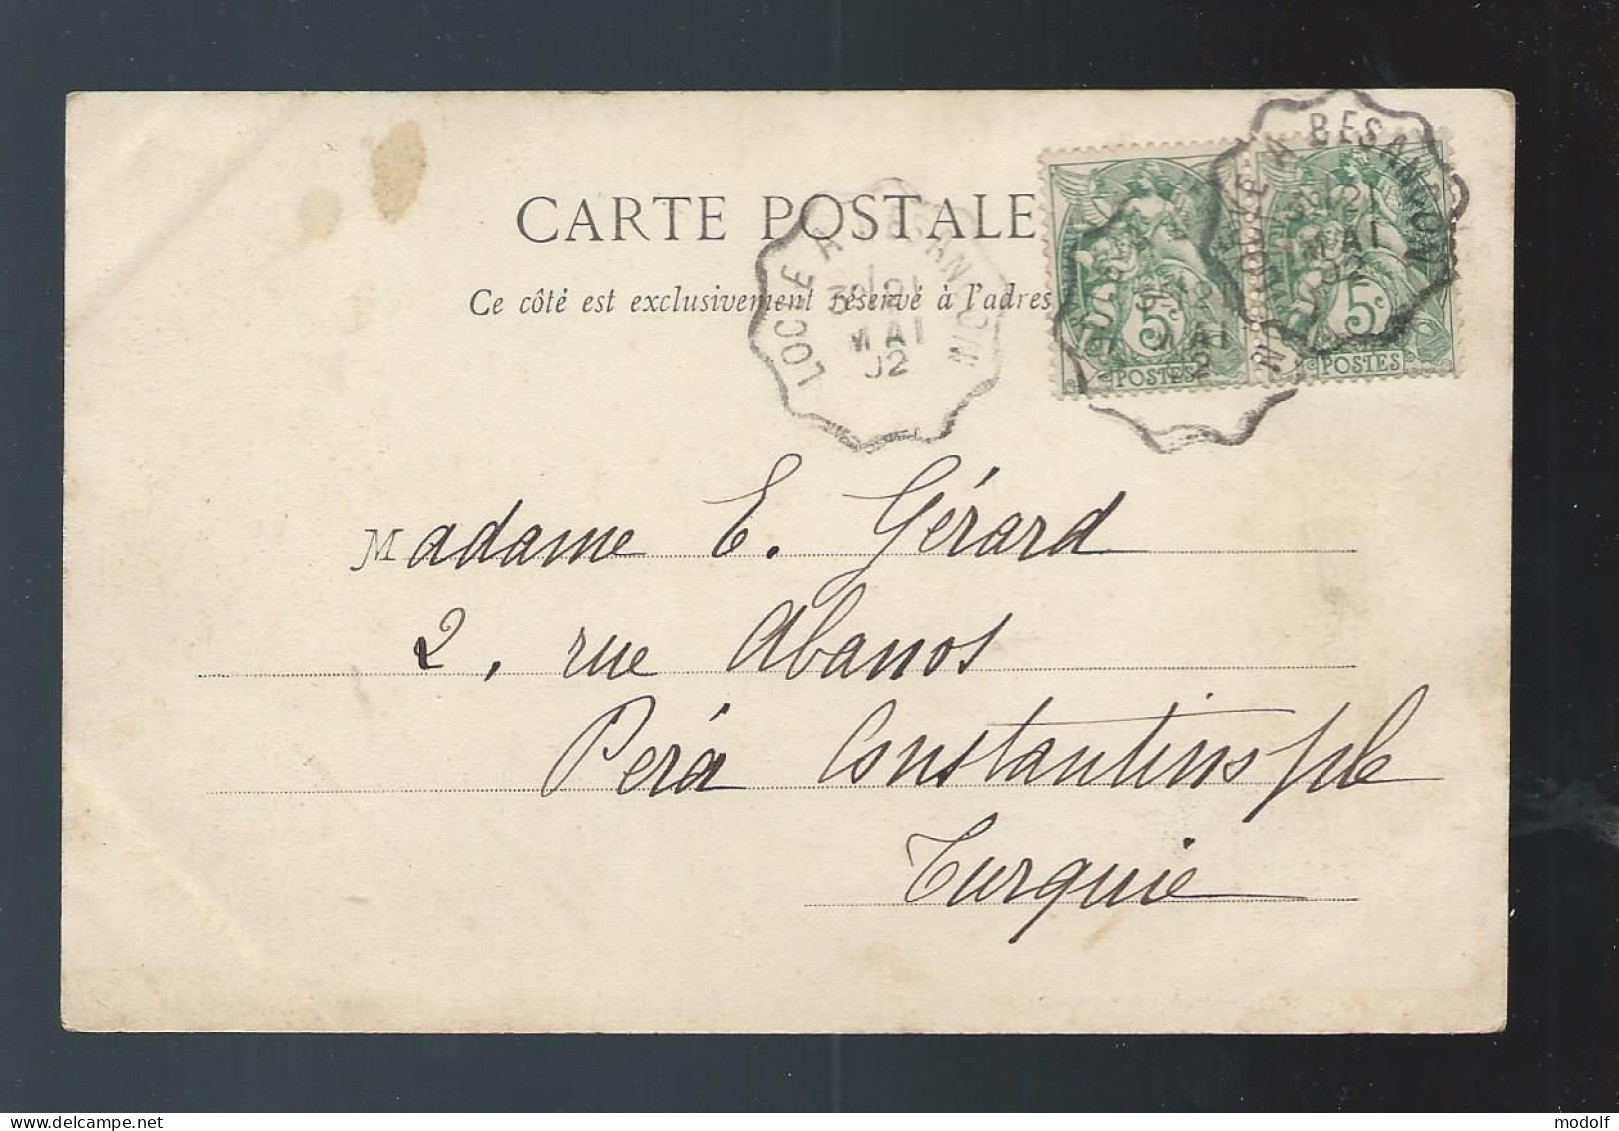 CARTE POSTALE
Ce côté est exclusivement réservé à l'adres
LOCLE A BESANCON
30 21
MAI
02
LOCLE A BESANCON
MAI
02
MAI
2
5c
POSTES
5c
POSTES
Madame E. Gérard
2, rue Abanos
Pera Constantinople
Turquie
modolf